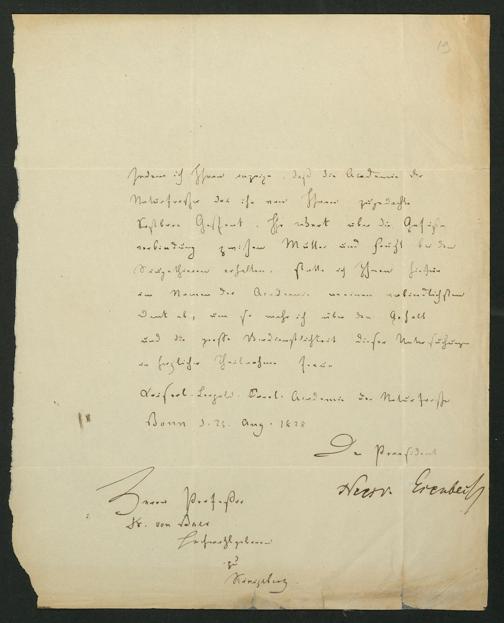 19
Indem ich Ihnen anzeige, daß die Academie der
Naturforscher das ihr von Ihnen zugedachte
kostbare Geschenk, Ihr Werk über die Gefäß-
verbindung zwischen Mutter und Frucht bei den
Säugethieren erhalten, statte ich Ihnen hiefür
im Namen der Academie meinen verbindlichsten
Dank ab, um so mehr ich über den Gehalt
und die große Verdienstlichkeit dieser Untersuchungen
in herzlicher Theilnahme
Kaiserl. Leopold. Carol. Academie der Naturforscher
Bonn d. 25. Aug. 1828
Der Praesident
Nees v. Esenbeck
Herrn Professor
Dr. von Baer
Hochwohlgeboren
zu
Königsberg.